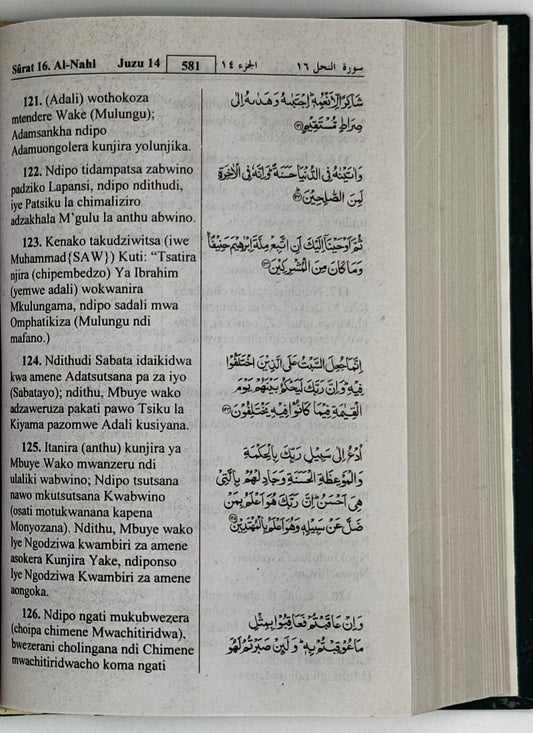 Sûrat 16. Al-Nahl Juzu 14 581 الجزء ١٤ سورة النحل ١٦
121. (Adali) wothokoza
mtendere Wake (Mulungu);
Adamsankha ndipo
Adamuongolera kunjira yolunjika.
122. Ndipo tidampatsa zabwino
padziko Lapansi, ndipo ndithudi,
iye Patsiku la chimaliziro
adzakhala M'gulu la anthu abwino.
123. Kenako takudziwitsa (iwe
Muhammad{SAW}) Kuti: “Tsatira
njira (chipembedzo) Ya Ibrahim
(yemwe adali) wokwanira
Mkulungama, ndipo sadali mwa
Omphatikiza (Mulungu ndi
mafano.)
124. Ndithudi Sabata idaikidwa
kwa amene Adatsutsana pa za iyo
(Sabatayo); ndithu, Mbuye wako
adzaweruza pakati pawo Tsiku la
Kiyama pazomwe Adali kusiyana.
125. Itanira (anthu) kunjira ya
Mbuye Wako mwanzeru ndi
ulaliki wabwino; Ndipo tsutsana
nawo mkutsutsana Kwabwino
(osati motukwanana kapena
Monyozana). Ndithu, Mbuye wako
Iye Ngodziwa kwambiri za amene
asokera Kunjira Yake, ndiponso
Iye Ngodziwa Kwambiri za amene
aongoka.
126. Ndipo ngati mukubwezera
(choipa chimene Mwachitiridwa),
bwezerani cholingana ndi Chimene
mwachitiridwacho koma ngati
شَاكِرًا لِّأَنْعُمِهِ ۚ اجْتَبَاهُ وَهَدَاهُ إِلَىٰ
صِرَاطٍ مُّسْتَقِيمٍ ۝١٢١
وَآتَيْنَاهُ فِي الدُّنْيَا حَسَنَةً ۖ وَإِنَّهُ فِي الْآخِرَةِ
لَمِنَ الصَّالِحِينَ ۝١٢٢
ثُمَّ أَوْحَيْنَا إِلَيْكَ أَنِ اتَّبِعْ مِلَّةَ إِبْرَاهِيمَ حَنِيفًا ۖ
وَمَا كَانَ مِنَ الْمُشْرِكِينَ ۝١٢٣
إِنَّمَا جُعِلَ السَّبْتُ عَلَى الَّذِينَ اخْتَلَفُوا
فِيهِ ۚ وَإِنَّ رَبَّكَ لَيَحْكُمُ بَيْنَهُمْ يَوْمَ
الْقِيَامَةِ فِيمَا كَانُوا فِيهِ يَخْتَلِفُونَ ۝١٢٤
ادْعُ إِلَىٰ سَبِيلِ رَبِّكَ بِالْحِكْمَةِ
وَالْمَوْعِظَةِ الْحَسَنَةِ وَجَادِلْهُم بِالَّتِي
هِيَ أَحْسَنُ ۚ إِنَّ رَبَّكَ هُوَ أَعْلَمُ بِمَن
ضَلَّ عَن سَبِيلِهِ وَهُوَ أَعْلَمُ بِالْمُهْتَدِينَ ۝١٢٥
وَإِنْ عَاقَبْتُمْ فَعَاقِبُوا بِمِثْلِ
مَا عُوقِبْتُم بِهِ ۖ وَلَئِن صَبَرْتُمْ لَهُوَ